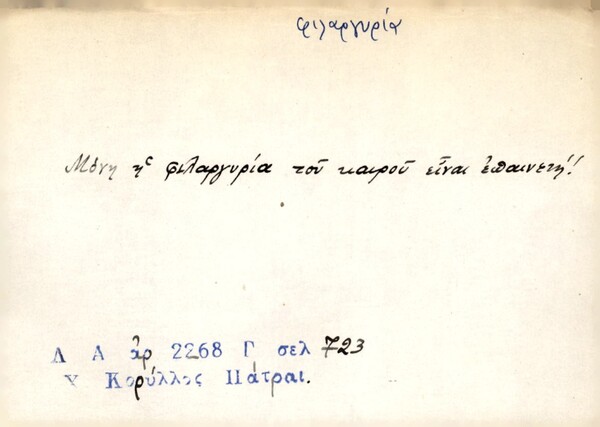 φιλαργυρία
Μόνη ἡ φιλαργυρία τοῦ καιροῦ εἶναι ἐπαινετή!!
Λ Α ἀρ 2268 Γ σελ 723
Χ Κορύλλος Πάτραι.